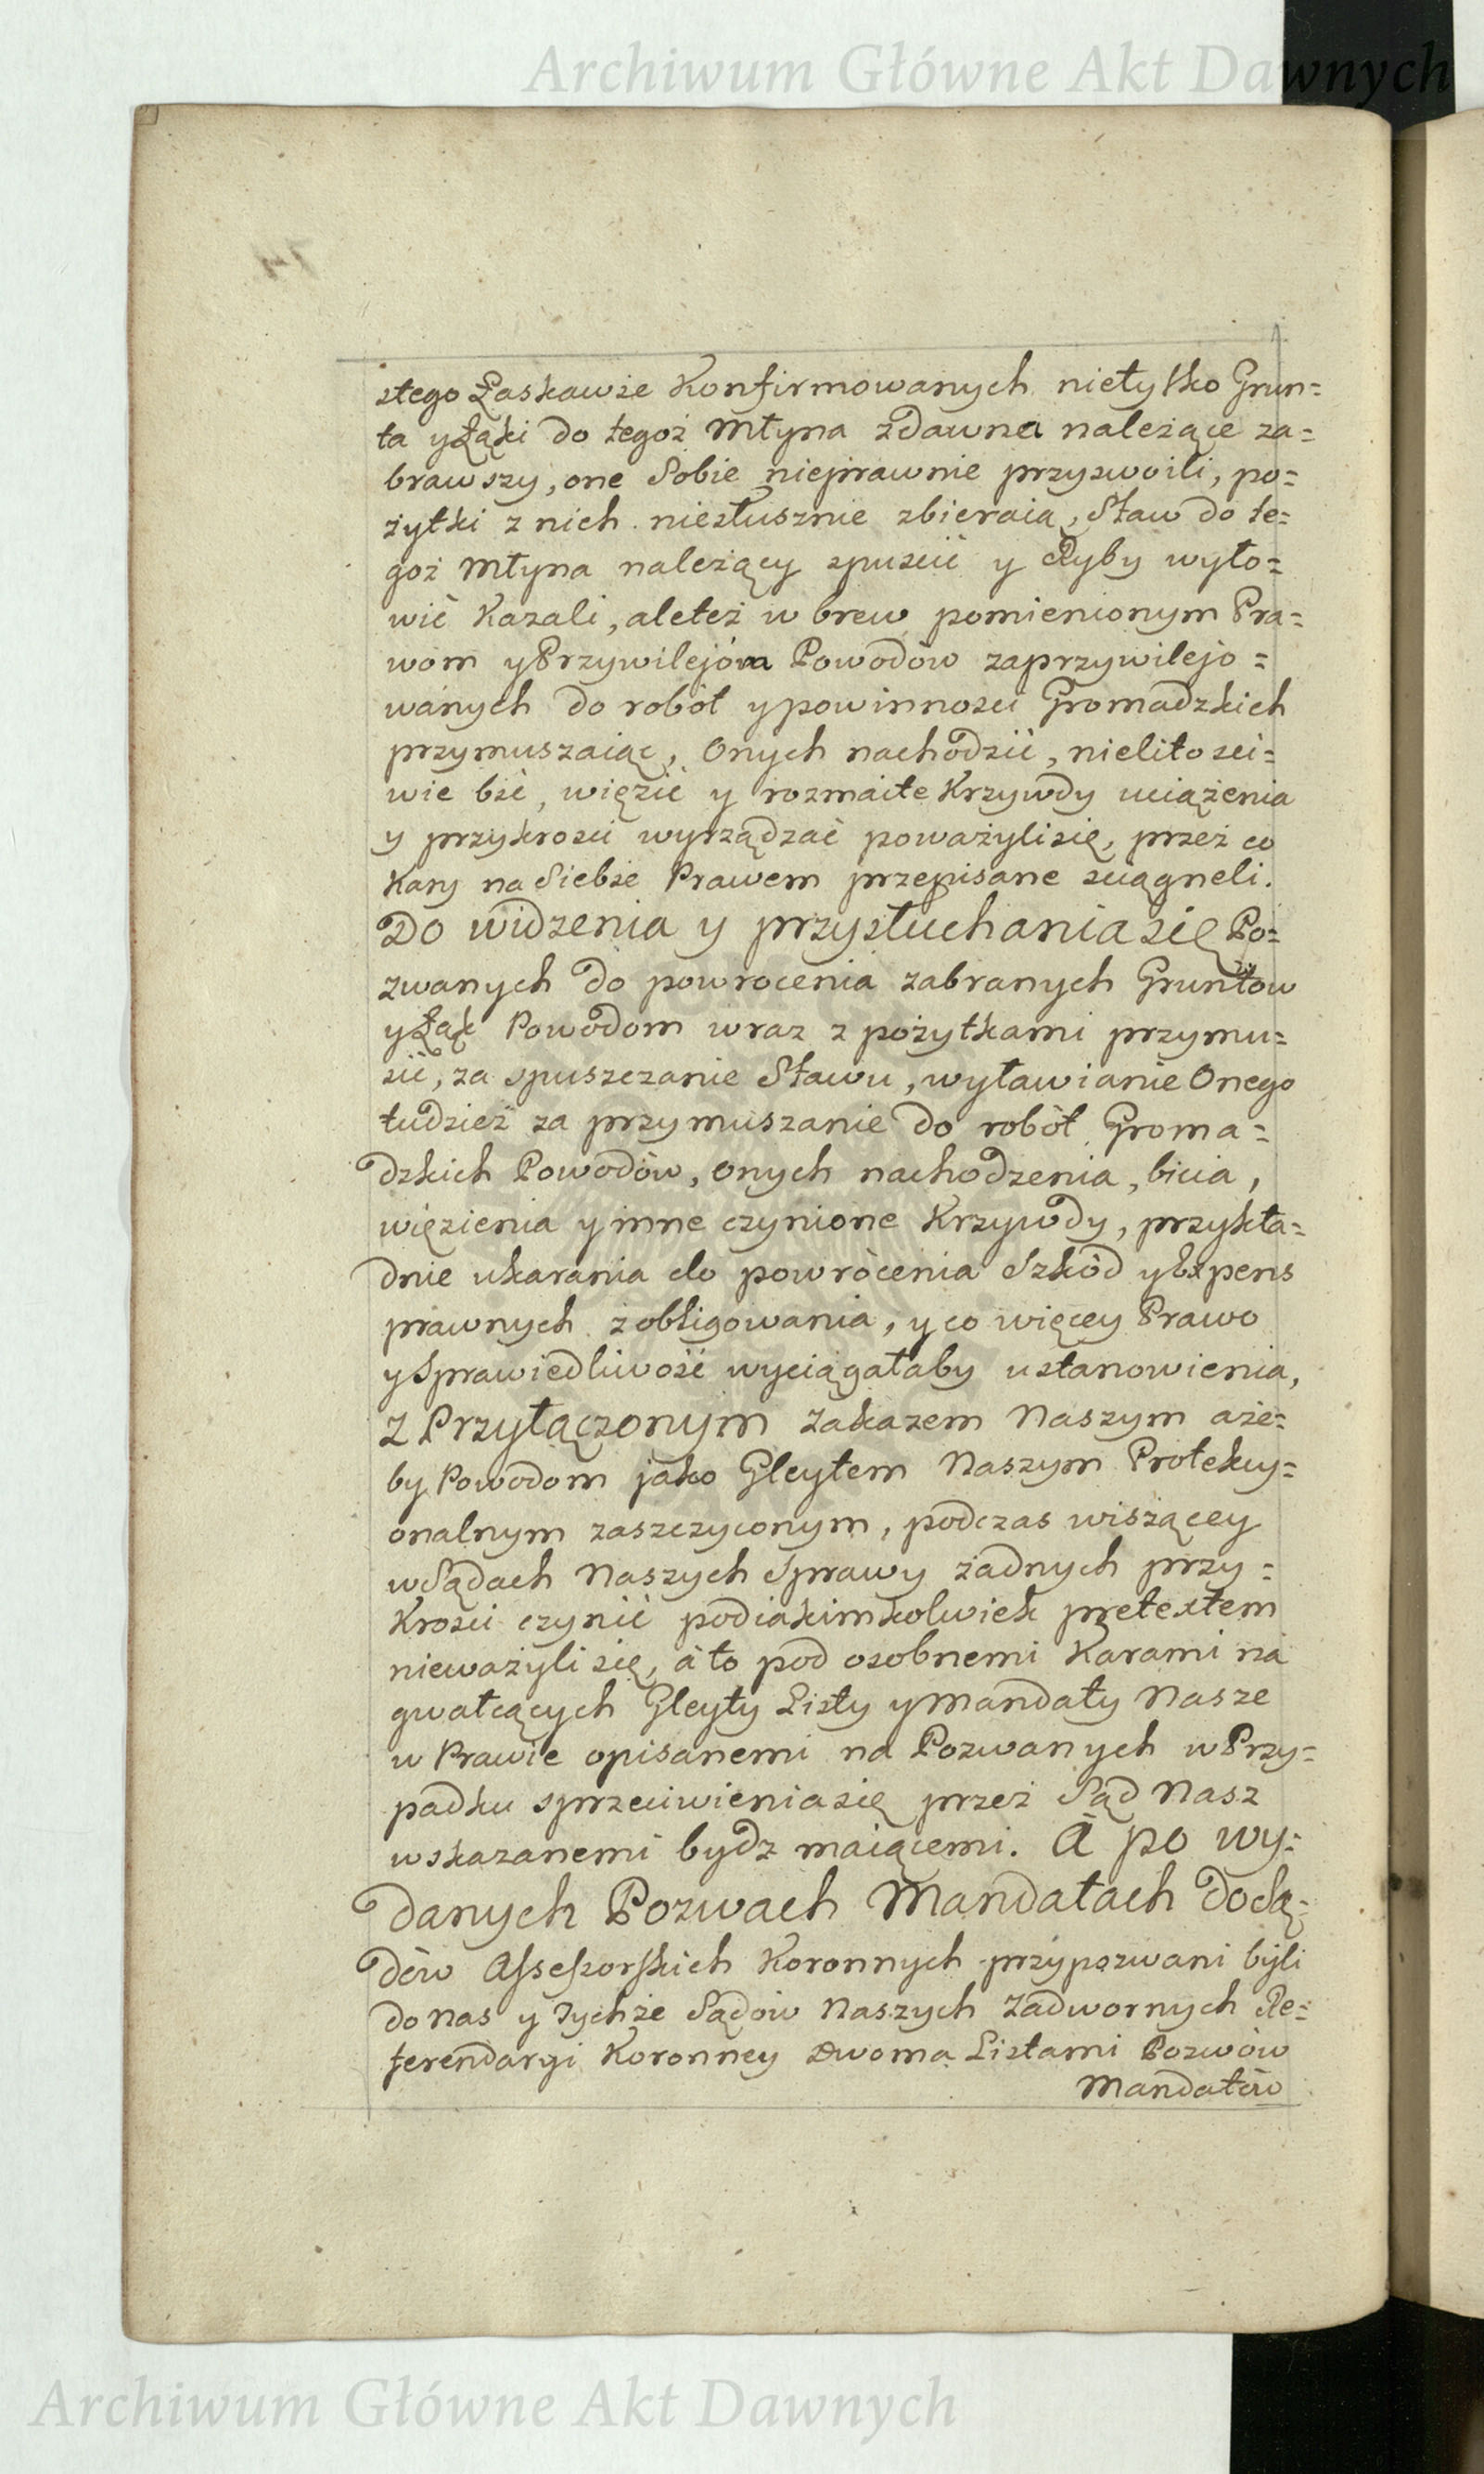 Archiwum Główne Akt Dawnych
stego Łaskawie Konfirmowanych nietylko Grun=
ta y Łąki do tegoż Młyna zdawna należące za=
brawszy, one Sobie nieprawnie przyswoili, po=
żytki z nich niesłusznie zbieraią, Staw do te=
goż Młyna należący spuscić y Ryby wyło=
wić Kazali, aleteż w brew pomienionym Pra=
wom y Przywilejóm Powodów zaprzywilejo=
wanych do robót y powinnosci Gromadzkich
przymuszaiąc, Onych nachodzić, nielitosci=
wie bić, więzić y rozmaite Krzywdy uciążenia
y przykrosci wyrządzać poważylisię, przez co
Kary na Siebie Prawem przepisane sciągneli.
Do widzenia y przysłuchania się Po=
zwanych do powrocenia zabranych Gruntow
y Łąk Powodom wraz z pożytkami przymu=
sić, za spuszczanie Stawu, wyławianie Onego
tudzież za przymuszanie do robót Groma=
dzkich Powodów, Onych nachodzenia, bicia,
więzienia y inne czynione Krzywdy, przykła=
dnie ukarania do powrócenia Szkód y Expens
prawnych zobligowania, y co więcey Prawo
y Sprawiedliwość wyciągałaby ustanowienia,
Z Przyłączonym zakazem Naszym aże=
by Powodom jako Gleytem Naszym Protekcy=
onalnym zaszczyconym, podczas wiszącey
w Sądach Naszych Sprawy żadnych przy=
Krosci czynić podiakimkolwiek pretextem
nieważyli się, à to pod osobnemi Karami na
gwałcących Gleyty Listy y Mandaty Nasze
w Prawie opisanemi na Pozwanych w Przy=
padku sprzeciwieniasię przez Sąd Nasz
wskazanemi bydz maiącemi. A po wy=
danych Pozwach Mandatach do Są=
dów Assessorskich Koronnych przypozwani byli
do Nas y Tychże Sądów Naszych Zadwornych Re=
ferendaryi Koronney Dwoma Listami Pozwów
Mandatów
Archiwum Główne Akt Dawnych